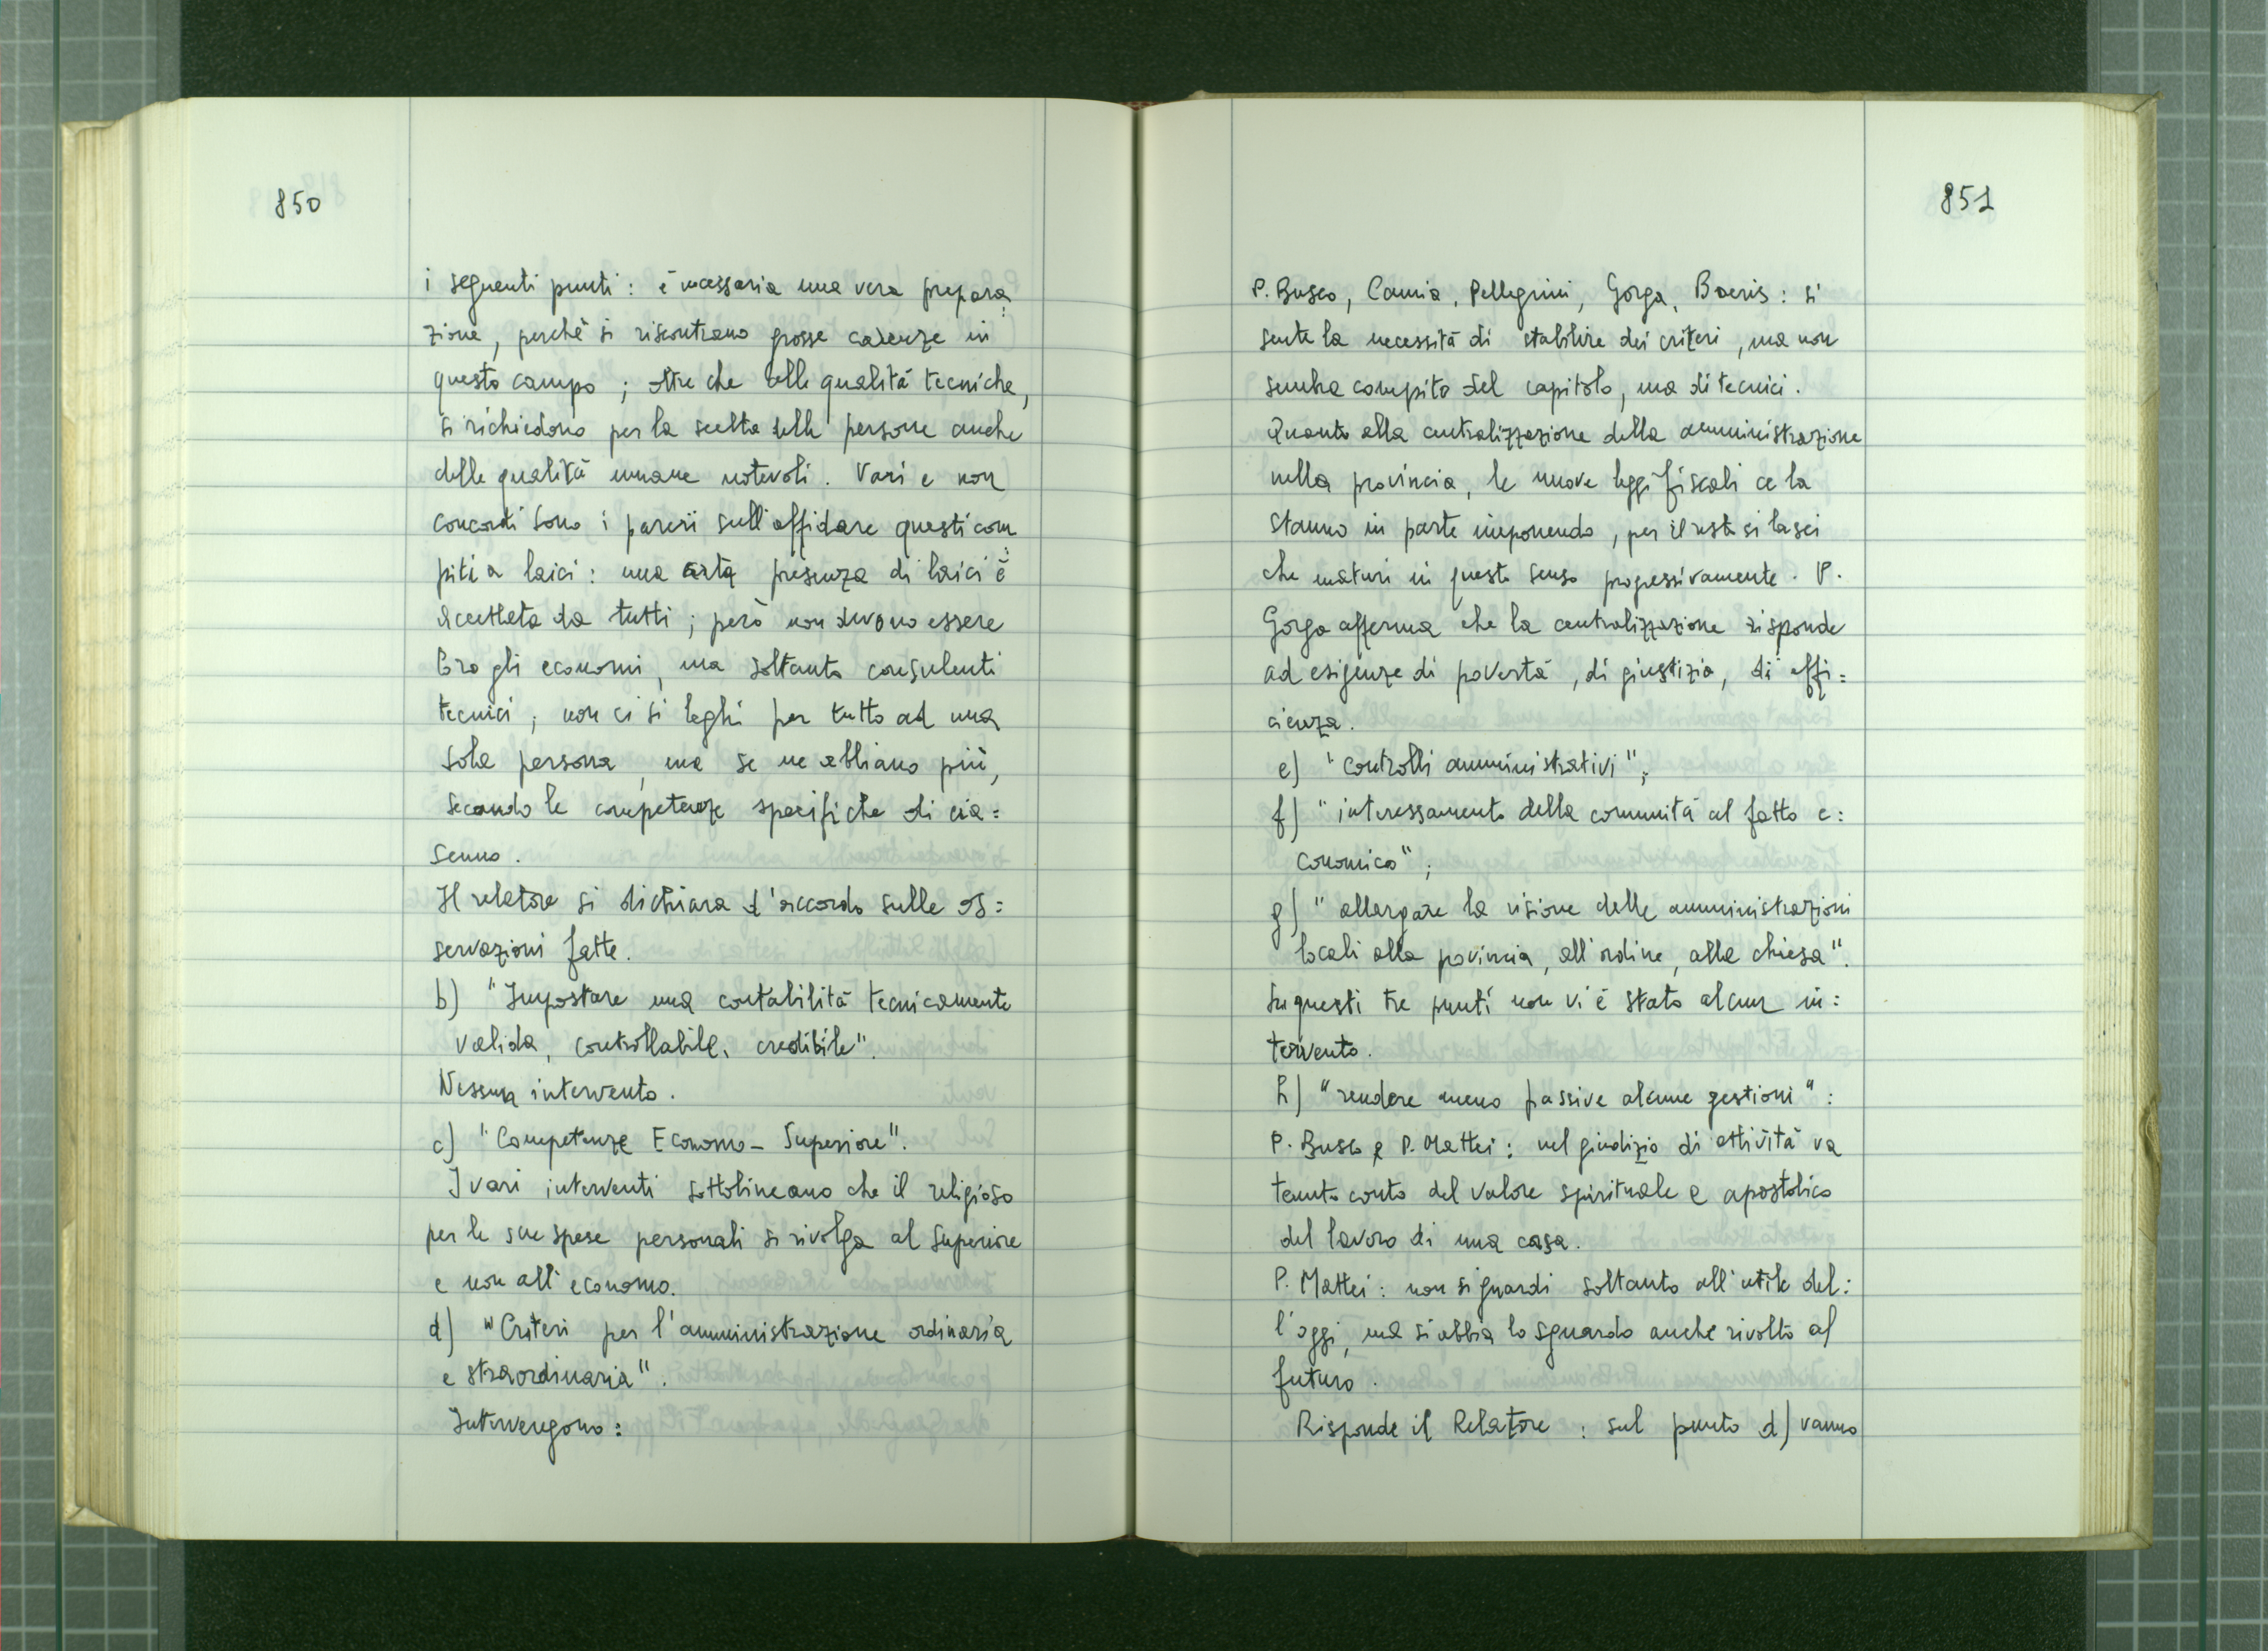 850
i seguenti punti: è necessaria una vera prepara:
zione, perchè si riscontrano grosse carenze in
questo campo; oltre che delle qualità tecniche,
si richiedono per la scelta delle persone anche
delle qualità umane notevoli. Vari e non
concordi sono i pareri sull'affidare questi com:
piti a laici: una certa presenza di laici è
accettata da tutti; però non devono essere
loro gli economi, ma soltanto consulenti
tecnici; non ci si leghi per tutto ad una
sola persona, ma se ne abbiano più,
secondo le competenze specifiche di cia=
scuno.
Il relatore si dichiara d'accordo sulle os=
servazioni fatte.
b) "Impostare una contabilità tecnicamente
valida, controllabile, credibile".
Nessun intervento.
c) "Competenze Economo - Superiore".
I vari interventi sottolineano che il religioso
per le sue spese personali si rivolga al Superiore
e non all'economo.
d) "Criteri per l'amministrazione ordinaria
e straordinaria".
Intervengono:
851
P. Busco, Camia, Pellegrini, Gorga, Boeris: si
sente la necessità di stabilire dei criteri, ma non
sembra compito del capitolo, ma di tecnici.
Quanto alla centralizzazione della amministrazione
nella provincia, le nuove leggi fiscali ce la
stanno in parte imponendo, per il resto si lasci
che maturi in questo senso progressivamente. P.
Gorga afferma che la centralizzazione risponde
ad esigenze di povertà, di giustizia, di effi=
cienza.
e) "controlli amministrativi";
f) "interessamento della comunità al fatto e:
conomico";
g) "allargare la visione delle amministrazioni
locali alla povincia, all'ordine, alla chiesa".
Su questi tre punti non vi è stato alcun in:
tervento.
h) "rendere meno passive alcune gestioni":
P. Busco e P. Mattei: nel giudizio di attività va
tenuto conto del valore spirituale e apostolico
del lavoro di una casa.
P. Mattei: non si guardi soltanto all'utile del:
l'oggi, ma si abbia lo sguardo anche rivolto al
futuro.
Risponde il Relatore: sul punto d) vanno